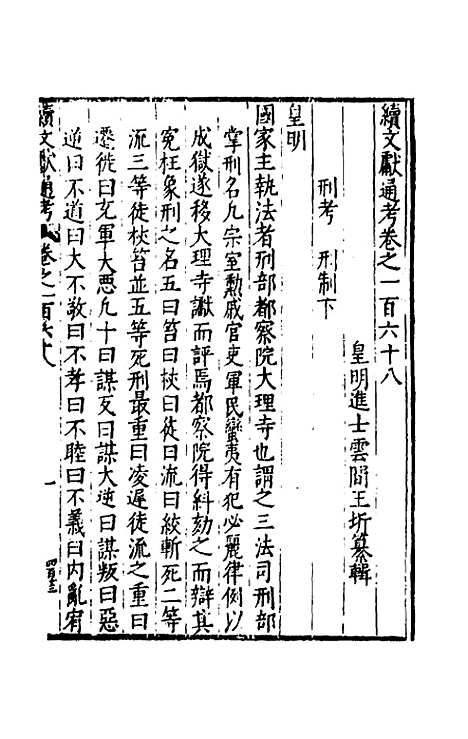 續文獻通考卷之一百六十八
皇明進士雲間王圻纂輯
刑考　刑制下
皇明
國家主執法者刑部都察院大理寺也謂之三法司刑部
掌刑名凡宗室勳戚官吏軍民蠻夷有犯必麗律例以
成獄遂移大理寺讞而評焉都察院得糾劾之而辯其
冤枉象刑之名五曰笞曰杖曰徒曰流曰絞斬死二等
流三等徒杖笞並五等死刑最重曰凌遲徒流之重曰
遷徙曰充軍大惡凡十曰謀反曰謀大逆曰謀叛曰惡
逆曰不道曰大不敬曰不孝曰不睦曰不義曰內亂宥
續文獻通考　卷之一百六十八　一